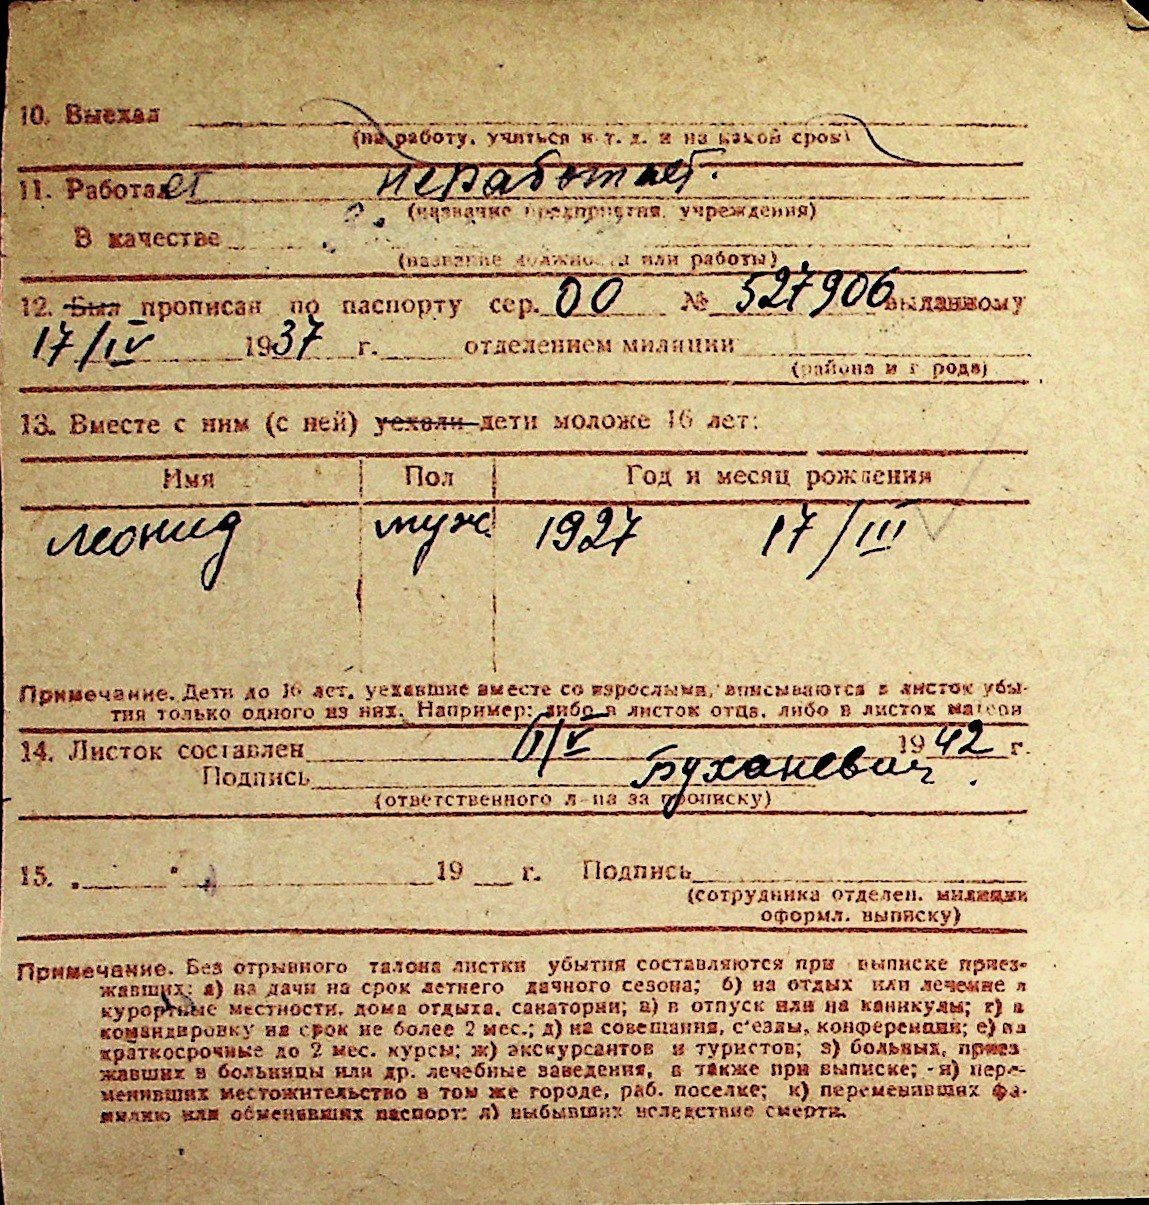 10. Выехал
(на работу, учиться и т. д. и на какой срок)
11. Работает не работает.
(название предприятия, учреждения)
В качестве
(название должности или работы)
12. Был прописан по паспорту сер. 00 № 527906 выданному
17/IV 1937 г. отделением милиции
(района и города)
13. Вместе с ним (с ней) уехали дети моложе 16 лет:
Имя Пол Год и месяц рождения
Леонид муж 1927 17/III
Примечание. Дети до 16 лет, уехавшие вместе со взрослыми, вписываются в листок убы-
тия только одного из них. Например: либо в листок отца, либо в листок матери
14. Листок составлен /V 1942 г.
Подпись Буханевич.
(ответственного л-ца за прописку)
15. „ " 19 г. Подпись
(сотрудника отделен. милиции
оформл. выписку)
Примечание. Без отрывного талона листки убытия составляются при выписке приез-
жавших: а) на дачи на срок летнего дачного сезона; б) на отдых или лечение в
курортные местности, дома отдыха, санатории; в) в отпуск или на каникулы; г) в
командировку на срок не более 2 мес.; д) на совещания, с'езды, конференции; е) на
краткосрочные до 2 мес. курсы; ж) экскурсантов и туристов; з) больных, приез
жавших в больницы или др. лечебные заведения, а также при выписке; - и) пере-
менивших местожительство в том же городе, раб. поселке; к) переменивших фа-
милию или обменявших паспорт; л) выбывших вследствие смерти.